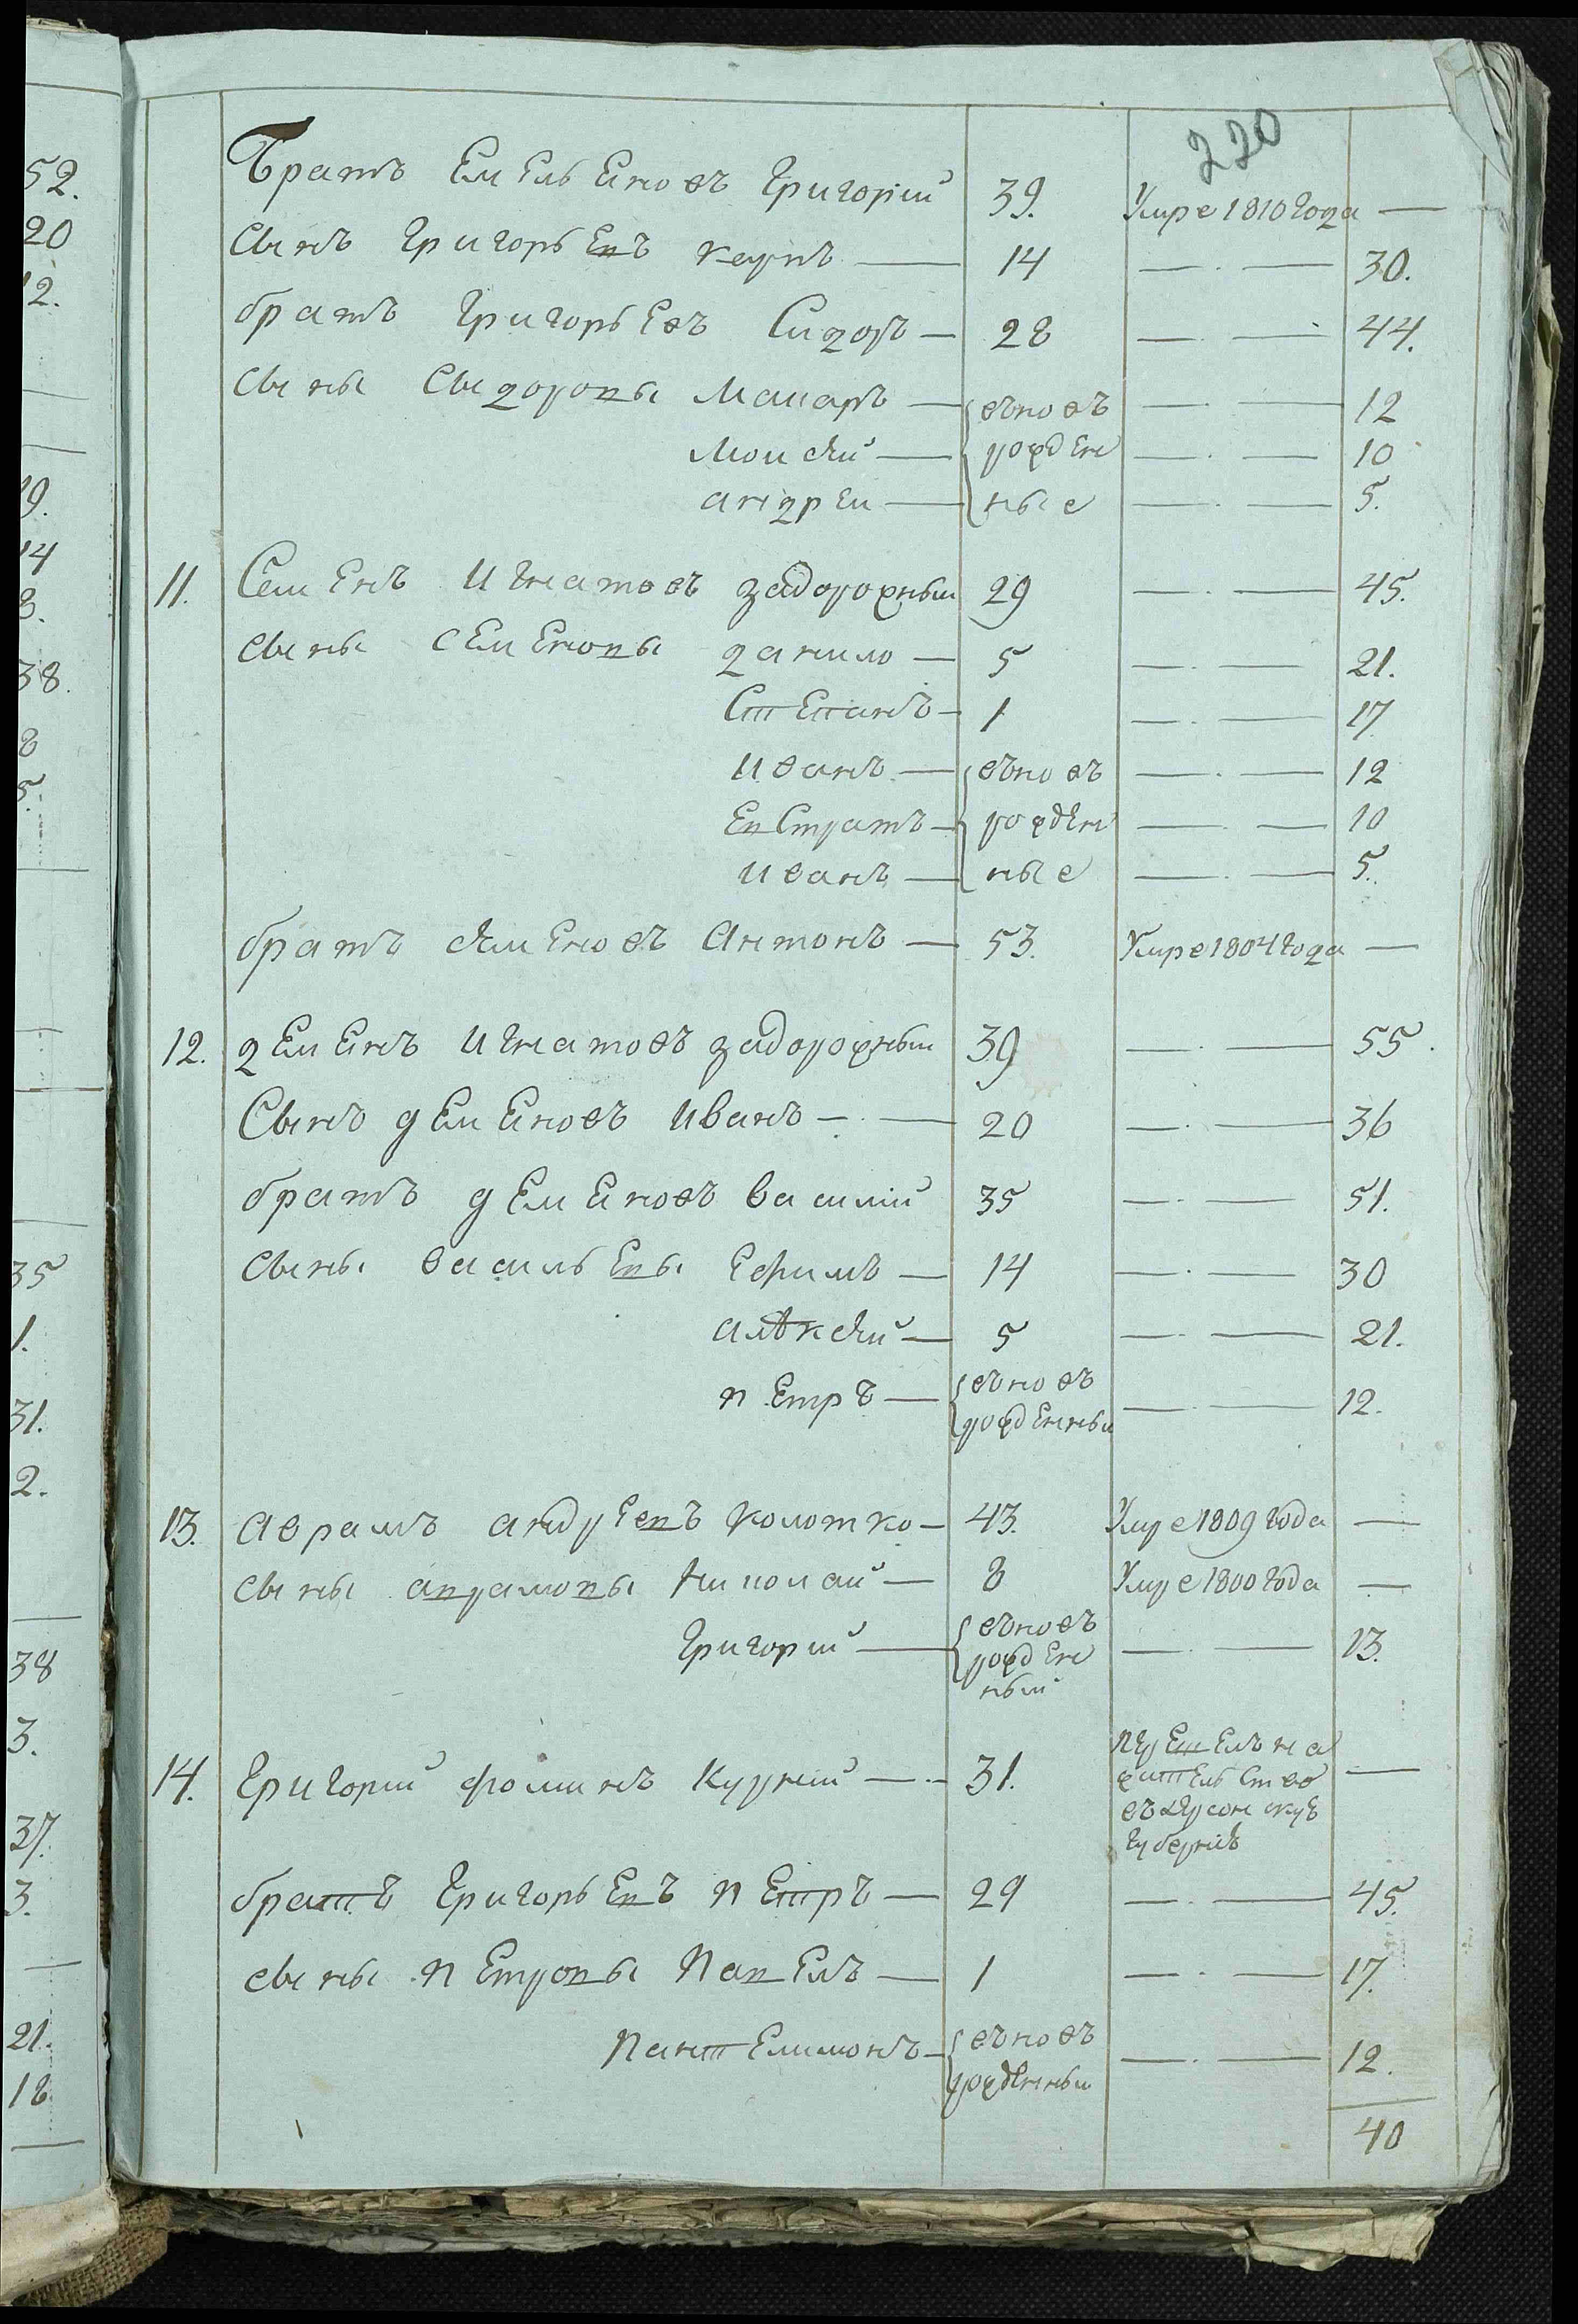 52.
20
12.
19.
14
8.
38.
8
5.
35
1.
31.
2.
38
3.
37.
3.
21.
18
220
Братъ Емельеновъ Григорій 39. Умре 1810 года —
Сынъ Григорьевъ Карпъ — 14 —.— 30.
братъ Григорьевъ Сидоръ — 28 —.— 44.
Сыны Сыдоровы Макаръ — въновъ —.— 12
Моисѣй — рожден —.— 10
андреи — ные —.— 5.
11. Семенъ Игнатовъ задорожныи 29 —.— 45.
сыны семеновы данило — 5 —.— 21.
Степанъ — 1 —.— 17
Иванъ — въновъ —.— 12
Евстратъ — рожден —.— 10
Иванъ — ные —.— 5.
братъ сѣменовъ Антонъ — 53. Умре 1804 года —
12. деменъ Игнатовъ задорожныи 39 —.— 55.
Сынъ деменовъ Иванъ —.— 20 —.— 36
братъ деменовъ василій 35 —.— 51.
сыны васильевы Ефимъ — 14 —.— 30
алѣксѣй — 5 —.— 21.
петръ — въновъ
рожденныи —.— 12.
13. аврамъ андреевъ колотко — 43. Умре 1809 года —
сыны аврамовы Николай — 8 Умре 1800 года —
Григорій — въновъ
рожден —.— 13.
ныи
14. Григорій фоминъ Курній —.— 31. перешелъ на
жительство —
въ херсонскую
губернію
братъ Григорьевъ петръ — 29 —.— 45.
сыны петровы павелъ — 1 —.— 17.
пантелимонъ — въновъ
рожденныи —.— 12.
40